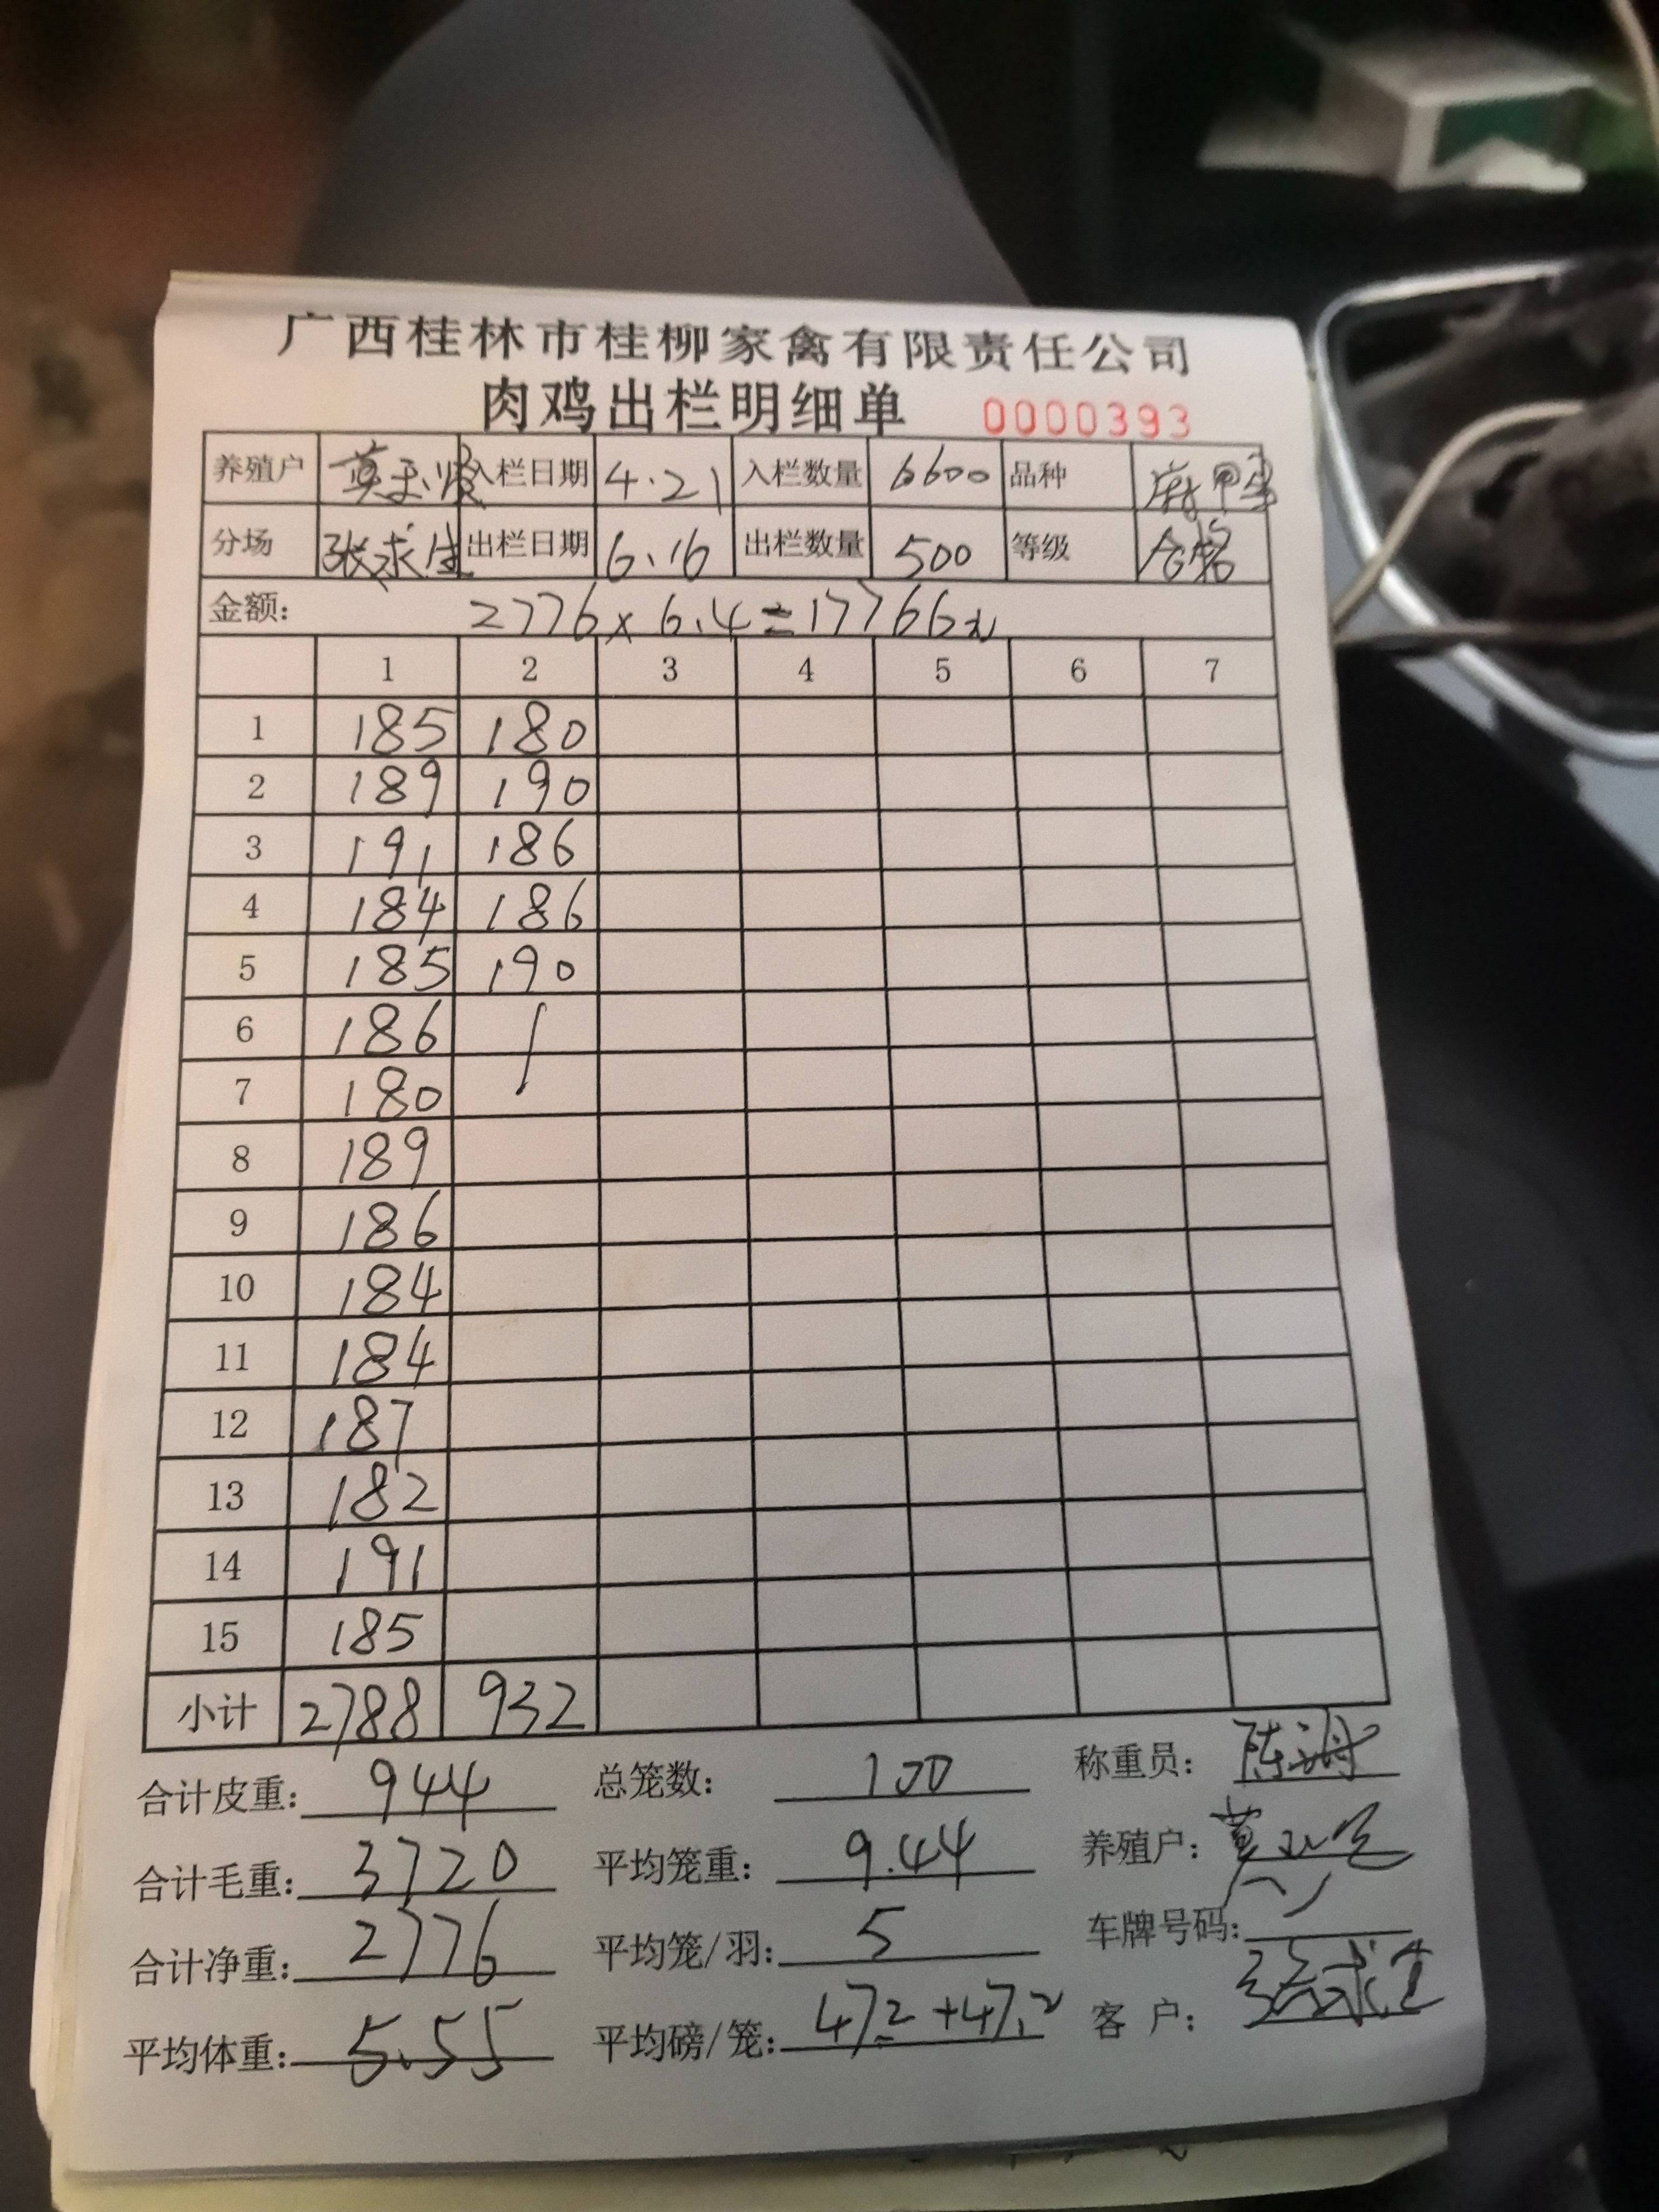 广西桂林市桂柳家禽有限责任公司
肉鸡出栏明细单 0000393
养殖户 入栏日期 4.21 入栏数量 6600 品种
分场 张求生 出栏日期 6.16 出栏数量 500 等级 合格
金额: 2776×6.4=17766元
1 2 3 4 5 6 7
1 185 180
2 189 190
3 191 186
4 184 186
5 185 190
6 186
7 180
8 189
9 186
10 184
11 184
12 187
13 182
14 191
15 185
小计 2788 932
合计皮重: 944 总笼数: 100 称重员:
合计毛重: 3720 平均笼重: 9.44 养殖户:
合计净重: 2776 平均笼/羽: 5 车牌号码:
平均体重: 5.55 平均磅/笼: 47.2+47.2 客户: